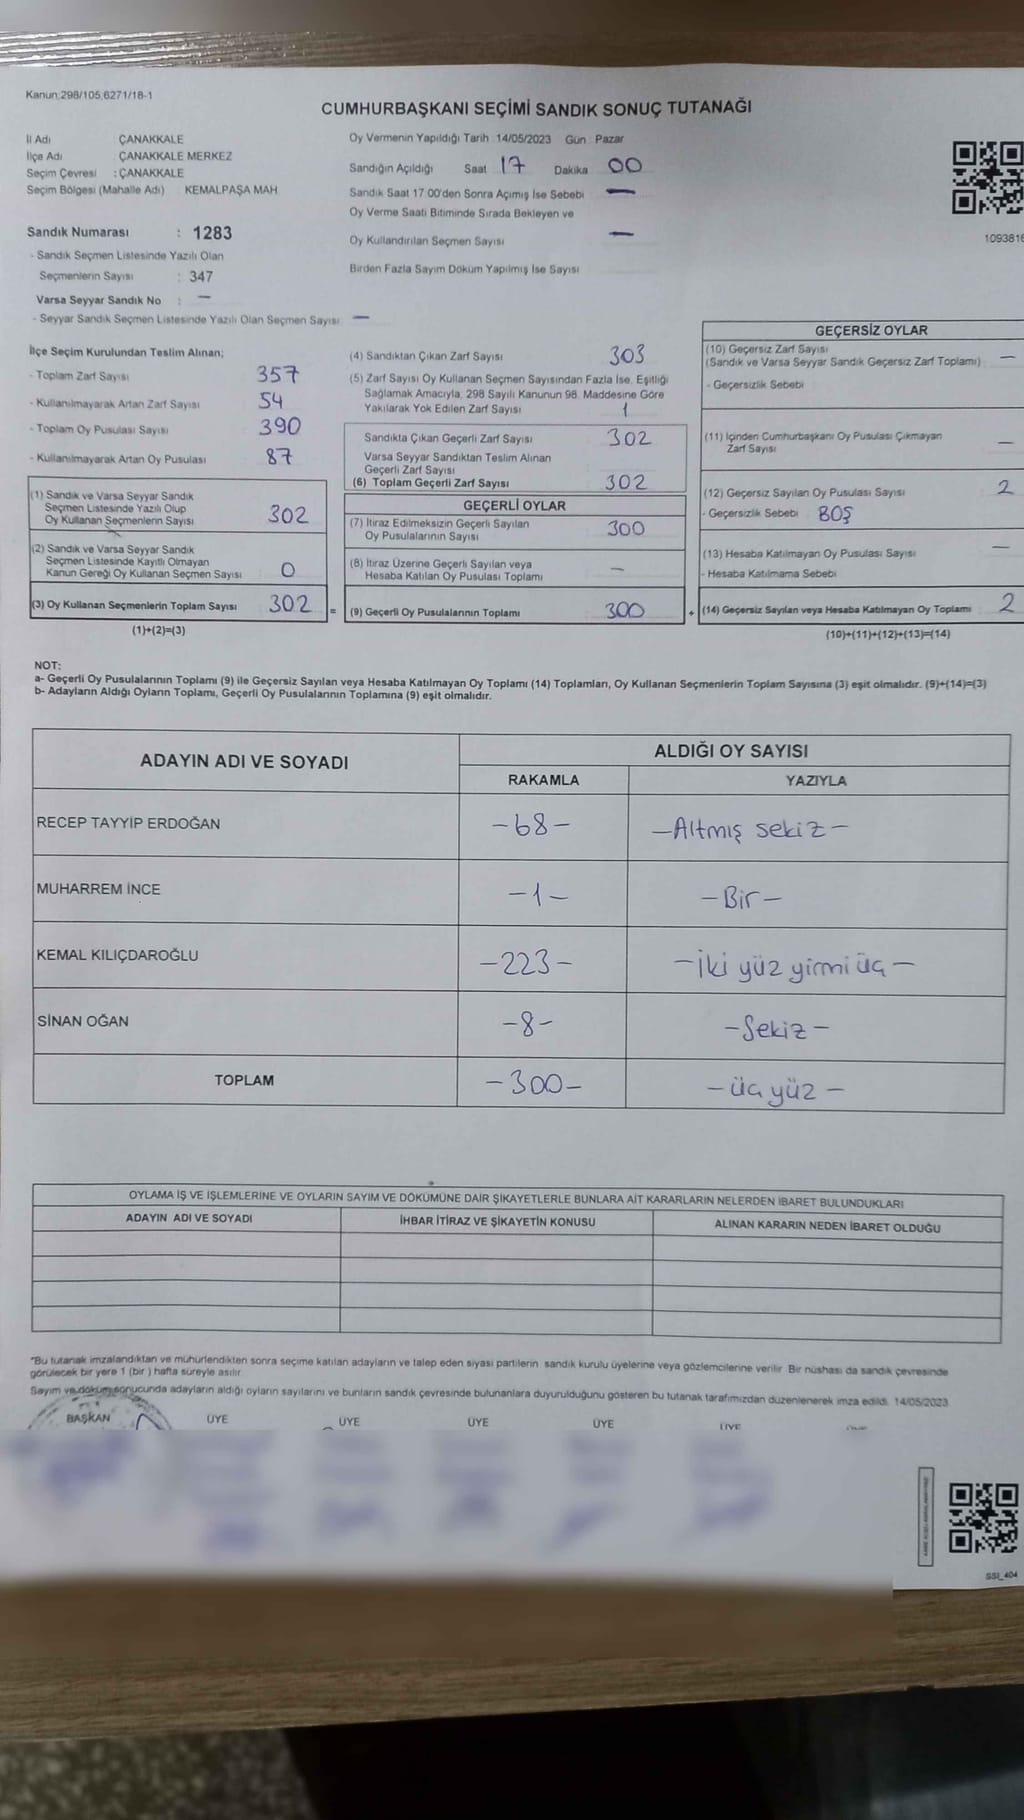 Kanun:298/105,6271/18-1
CUMHURBAŞKANI SEÇİMİ SANDIK SONUÇ TUTANAĞI
İl Adı ÇANAKKALE
İlçe Adı : ÇANAKKALE MERKEZ
Seçim Çevresi : ÇANAKKALE
Seçim Bölgesi (Mahalle Adı) : KEMALPAŞA MAH
Sandık Numarası : 1283
- Sandık Seçmen Listesinde Yazılı Olan
Seçmenlerin Sayısı : 347
Varsa Seyyar Sandık No : —
- Seyyar Sandık Seçmen Listesinde Yazılı Olan Seçmen Sayısı: —
Oy Vermenin Yapıldığı Tarih :14/05/2023 Gün : Pazar
Sandığın Açıldığı Saat 17 Dakika 00
Sandık Saat 17:00'den Sonra Açımış İse Sebebi —
Oy Verme Saati Bitiminde Sırada Bekleyen ve
Oy Kullandırılan Seçmen Sayısı —
Birden Fazla Sayım Döküm Yapılmış İse Sayısı
1093816
İlçe Seçim Kurulundan Teslim Alınan;
- Toplam Zarf Sayısı 357
- Kullanılmayarak Artan Zarf Sayısı 54
- Toplam Oy Pusulası Sayısı 390
- Kullanılmayarak Artan Oy Pusulası 87
(1) Sandık ve Varsa Seyyar Sandık
Seçmen Listesinde Yazılı Olup
Oy Kullanan Seçmenlerin Sayısı 302
(2) Sandık ve Varsa Seyyar Sandık
Seçmen Listesinde Kayıtlı Olmayan
Kanun Gereği Oy Kullanan Seçmen Sayısı 0
(3) Oy Kullanan Seçmenlerin Toplam Sayısı 302 =
(1)+(2)=(3)
(4) Sandıktan Çıkan Zarf Sayısı 303
(5) Zarf Sayısı Oy Kullanan Seçmen Sayısından Fazla İse, Eşitliği
Sağlamak Amacıyla, 298 Sayılı Kanunun 98. Maddesine Göre
Yakılarak Yok Edilen Zarf Sayısı 1
Sandıkta Çıkan Geçerli Zarf Sayısı 302
Varsa Seyyar Sandıktan Teslim Alınan
Geçerli Zarf Sayısı
(6) Toplam Geçerli Zarf Sayısı 302
GEÇERLİ OYLAR
(7) İtiraz Edilmeksizin Geçerli Sayılan
Oy Pusulalarının Sayısı 300
(8) İtiraz Üzerine Geçerli Sayılan veya
Hesaba Katılan Oy Pusulası Toplamı —
(9) Geçerli Oy Pusulalarının Toplamı 300 +
GEÇERSİZ OYLAR
(10) Geçersiz Zarf Sayısı
(Sandık ve Varsa Seyyar Sandık Geçersiz Zarf Toplamı) —
- Geçersizlik Sebebi
(11) İçinden Cumhurbaşkanı Oy Pusulası Çıkmayan
Zarf Sayısı —
(12) Geçersiz Sayılan Oy Pusulası Sayısı 2
- Geçersizlik Sebebi BOŞ
(13) Hesaba Katılmayan Oy Pusulası Sayısı —
- Hesaba Katılmama Sebebi
(14) Geçersiz Sayılan veya Hesaba Katılmayan Oy Toplamı 2
(10)+(11)+(12)+(13)=(14)
NOT:
a- Geçerli Oy Pusulalarının Toplamı (9) ile Geçersiz Sayılan veya Hesaba Katılmayan Oy Toplamı (14) Toplamları, Oy Kullanan Seçmenlerin Toplam Sayısına (3) eşit olmalıdır. (9)+(14)=(3)
b- Adayların Aldığı Oyların Toplamı, Geçerli Oy Pusulalarının Toplamına (9) eşit olmalıdır.
ADAYIN ADI VE SOYADI
ALDIĞI OY SAYISI
RAKAMLA YAZIYLA
RECEP TAYYİP ERDOĞAN -68- -Altmış sekiz-
MUHARREM İNCE -1- -Bir-
KEMAL KILIÇDAROĞLU -223- -İki yüz yirmi üç-
SİNAN OĞAN -8- -Sekiz-
TOPLAM -300- -üç yüz-
OYLAMA İŞ VE İŞLEMLERİNE VE OYLARIN SAYIM VE DÖKÜMÜNE DAİR ŞİKAYETLERLE BUNLARA AİT KARARLARIN NELERDEN İBARET BULUNDUKLARI
ADAYIN ADI VE SOYADI İHBAR İTİRAZ VE ŞİKAYETİN KONUSU ALINAN KARARIN NEDEN İBARET OLDUĞU
*Bu tutanak imzalandıktan ve mühürlendikten sonra seçime katılan adayların ve talep eden siyasi partilerin sandık kurulu üyelerine veya gözlemcilerine verilir. Bir nüshası da sandık çevresinde
görülecek bir yere 1 (bir ) hafta süreyle asılır.
Sayım ve döküm sonucunda adayların aldığı oyların sayılarını ve bunların sandık çevresinde bulunanlara duyurulduğunu gösteren bu tutanak tarafımızdan düzenlenerek imza edildi. 14/05/2023
BAŞKAN ÜYE ÜYE ÜYE ÜYE ÜYE
SSI_404